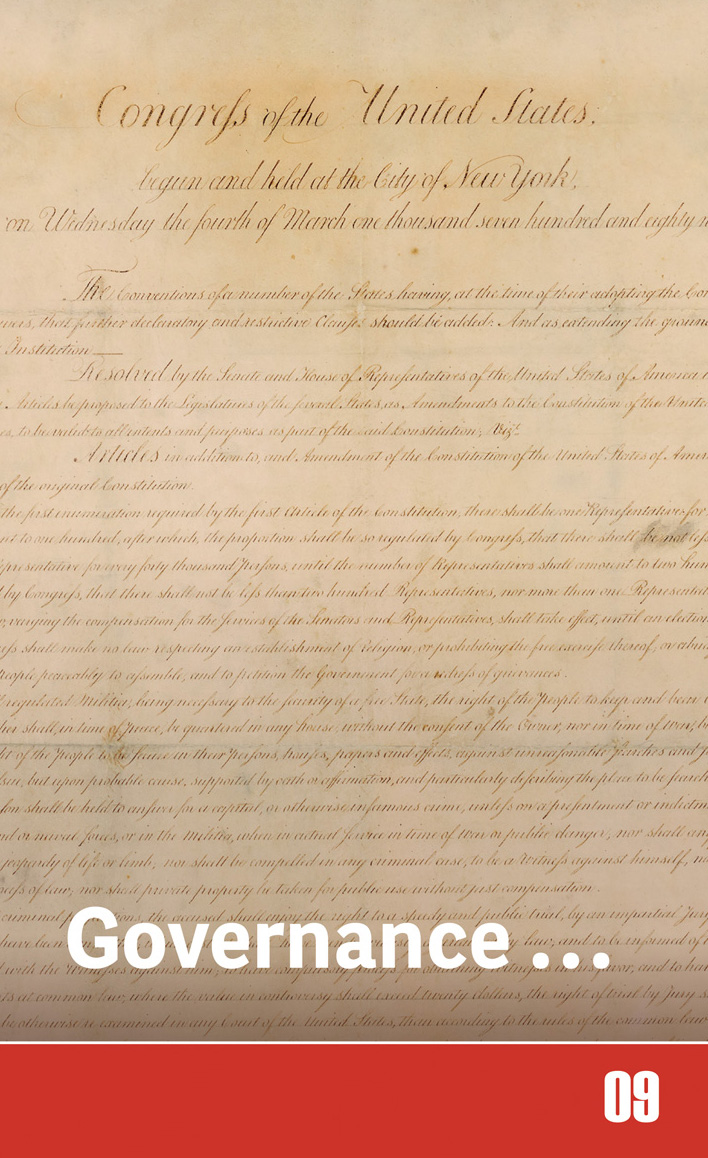 Congreſs of the United States.
begun and held at the City of New York,
on Wednesday the fourth of March one thousand seven hundred and eighty
The Conventions of a number of the States having, at the time of their adopting the
that further declaratory and restrictive Clauses should be added: And as extending the ground
Institution
Resolved by the Senate and House of Representatives of the United States of America
Articles be proposed to the Legislatures of the several States, as Amendments to the Constitution of the
to be valid to all intents and purposes as part of the said Constitution; Viz.t
Articles in addition to, and Amendment of the Constitution of the United States of
of the original Constitution.
the first enumeration required by the first Article of the Constitution, there shall be one Representative for
to one hundred, after which, the proportion shall be so regulated by Congress, that there shall be not
for every forty thousand Persons, until the number of Representatives shall amount to two
by Congress, that there shall not be less than two hundred Representatives, nor more than one
varying the compensation for the services of the Senators and Representatives, shall take effect, until an election
shall make no law respecting an establishment of Religion, or prohibiting the free exercise thereof, or
people peaceably to assemble, and to petition the Government for a redress of grievances.
regulated Militia, being necessary to the security of a free State, the right of the People to keep and bear
shall, in time of peace, be quartered in any house, without the consent of the Owner, nor in time of war,
of the People to be secure in their persons, houses, papers and effects, against unreasonable searches and
but upon probable cause, supported by oath or affirmation, and particularly describing the place to be
shall be held to answer for a capital, or otherwise infamous crime, unless on a presentment or
or naval forces, or in the Militia, when in actual service in time of War or public danger; nor shall any
jeopardy of life or limb; nor shall be compelled in any criminal case, to be a Witness against himself,
of law; nor shall private property be taken for public use without just compensation.
criminal the accused shall enjoy the right to a speedy and public trial, by an impartial Jury
Governance ...
have been law, and to be informed of
with the Witnesses against him; and to
at common law, where the value in controversy shall exceed twenty dollars, the right of trial by Jury
be otherwise re-examined in any Court of the United States, than according to the rules of the common law
09